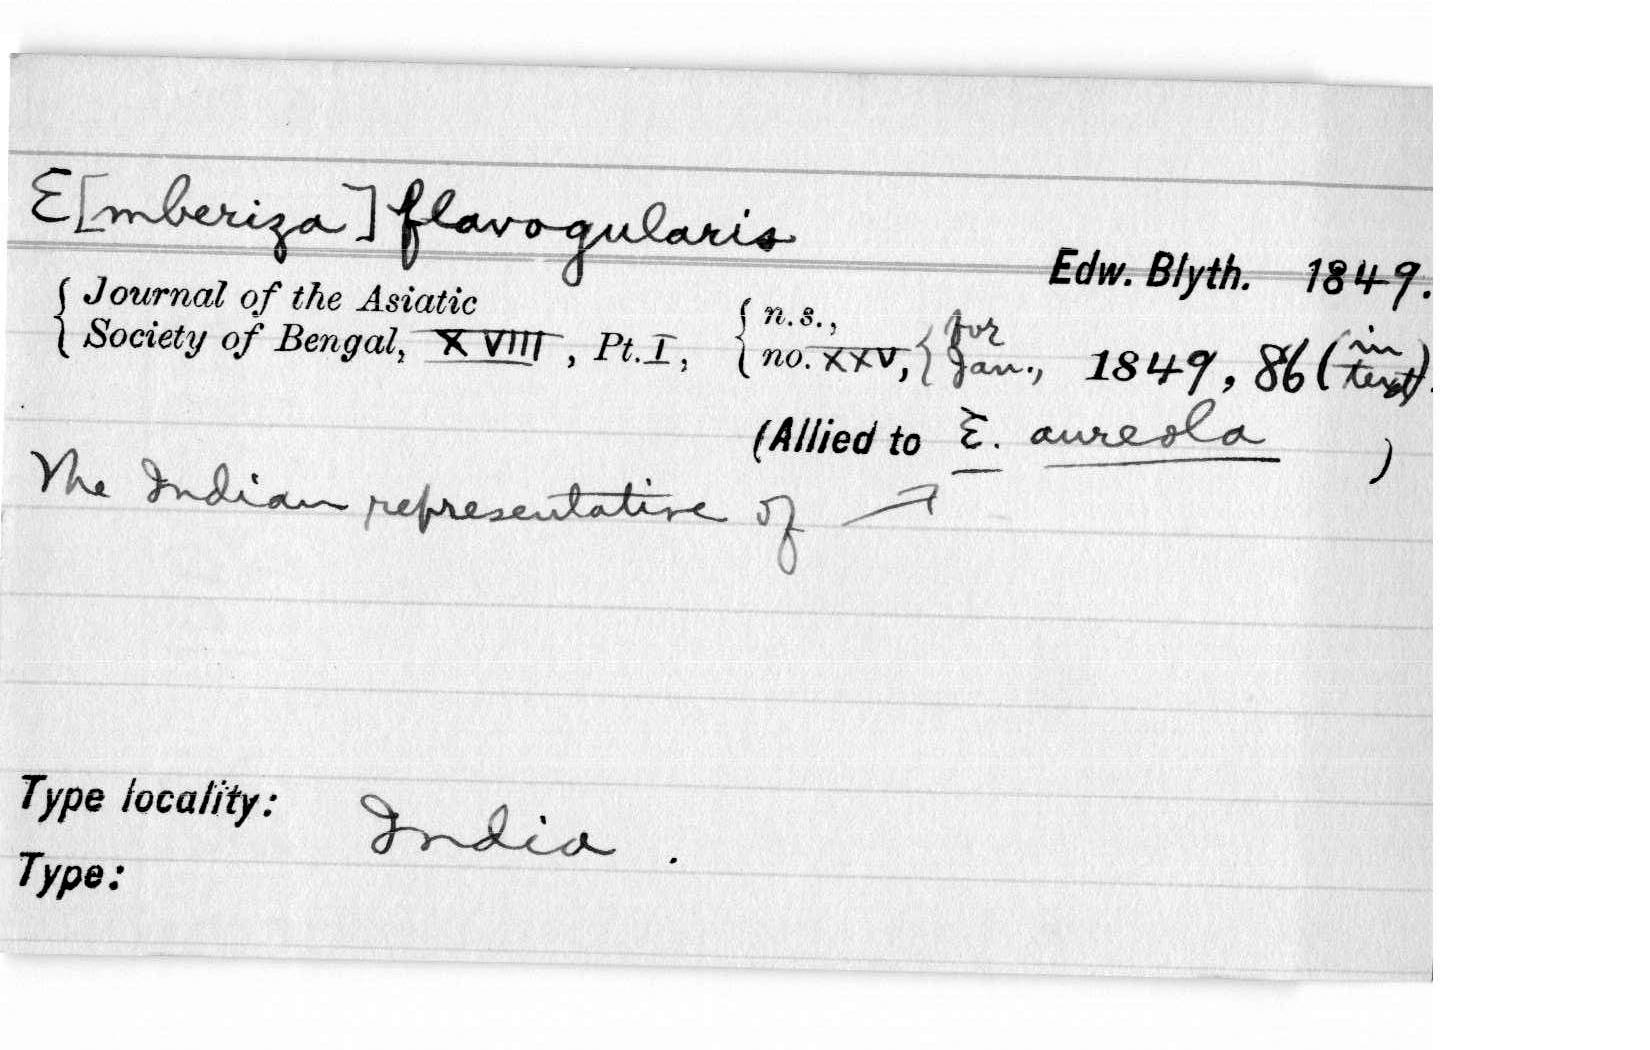 E[mberiza] flavogularis
Edw. Blyth. 1849.
{ Journal of the Asiatic { n.s., { for (in
{ Society of Bengal, XVIII, Pt. I, { no. XXV, { Jan., 1849, 86 text).
(Allied to E. aureola )
The Indian representative of →
Type locality: India.
Type: